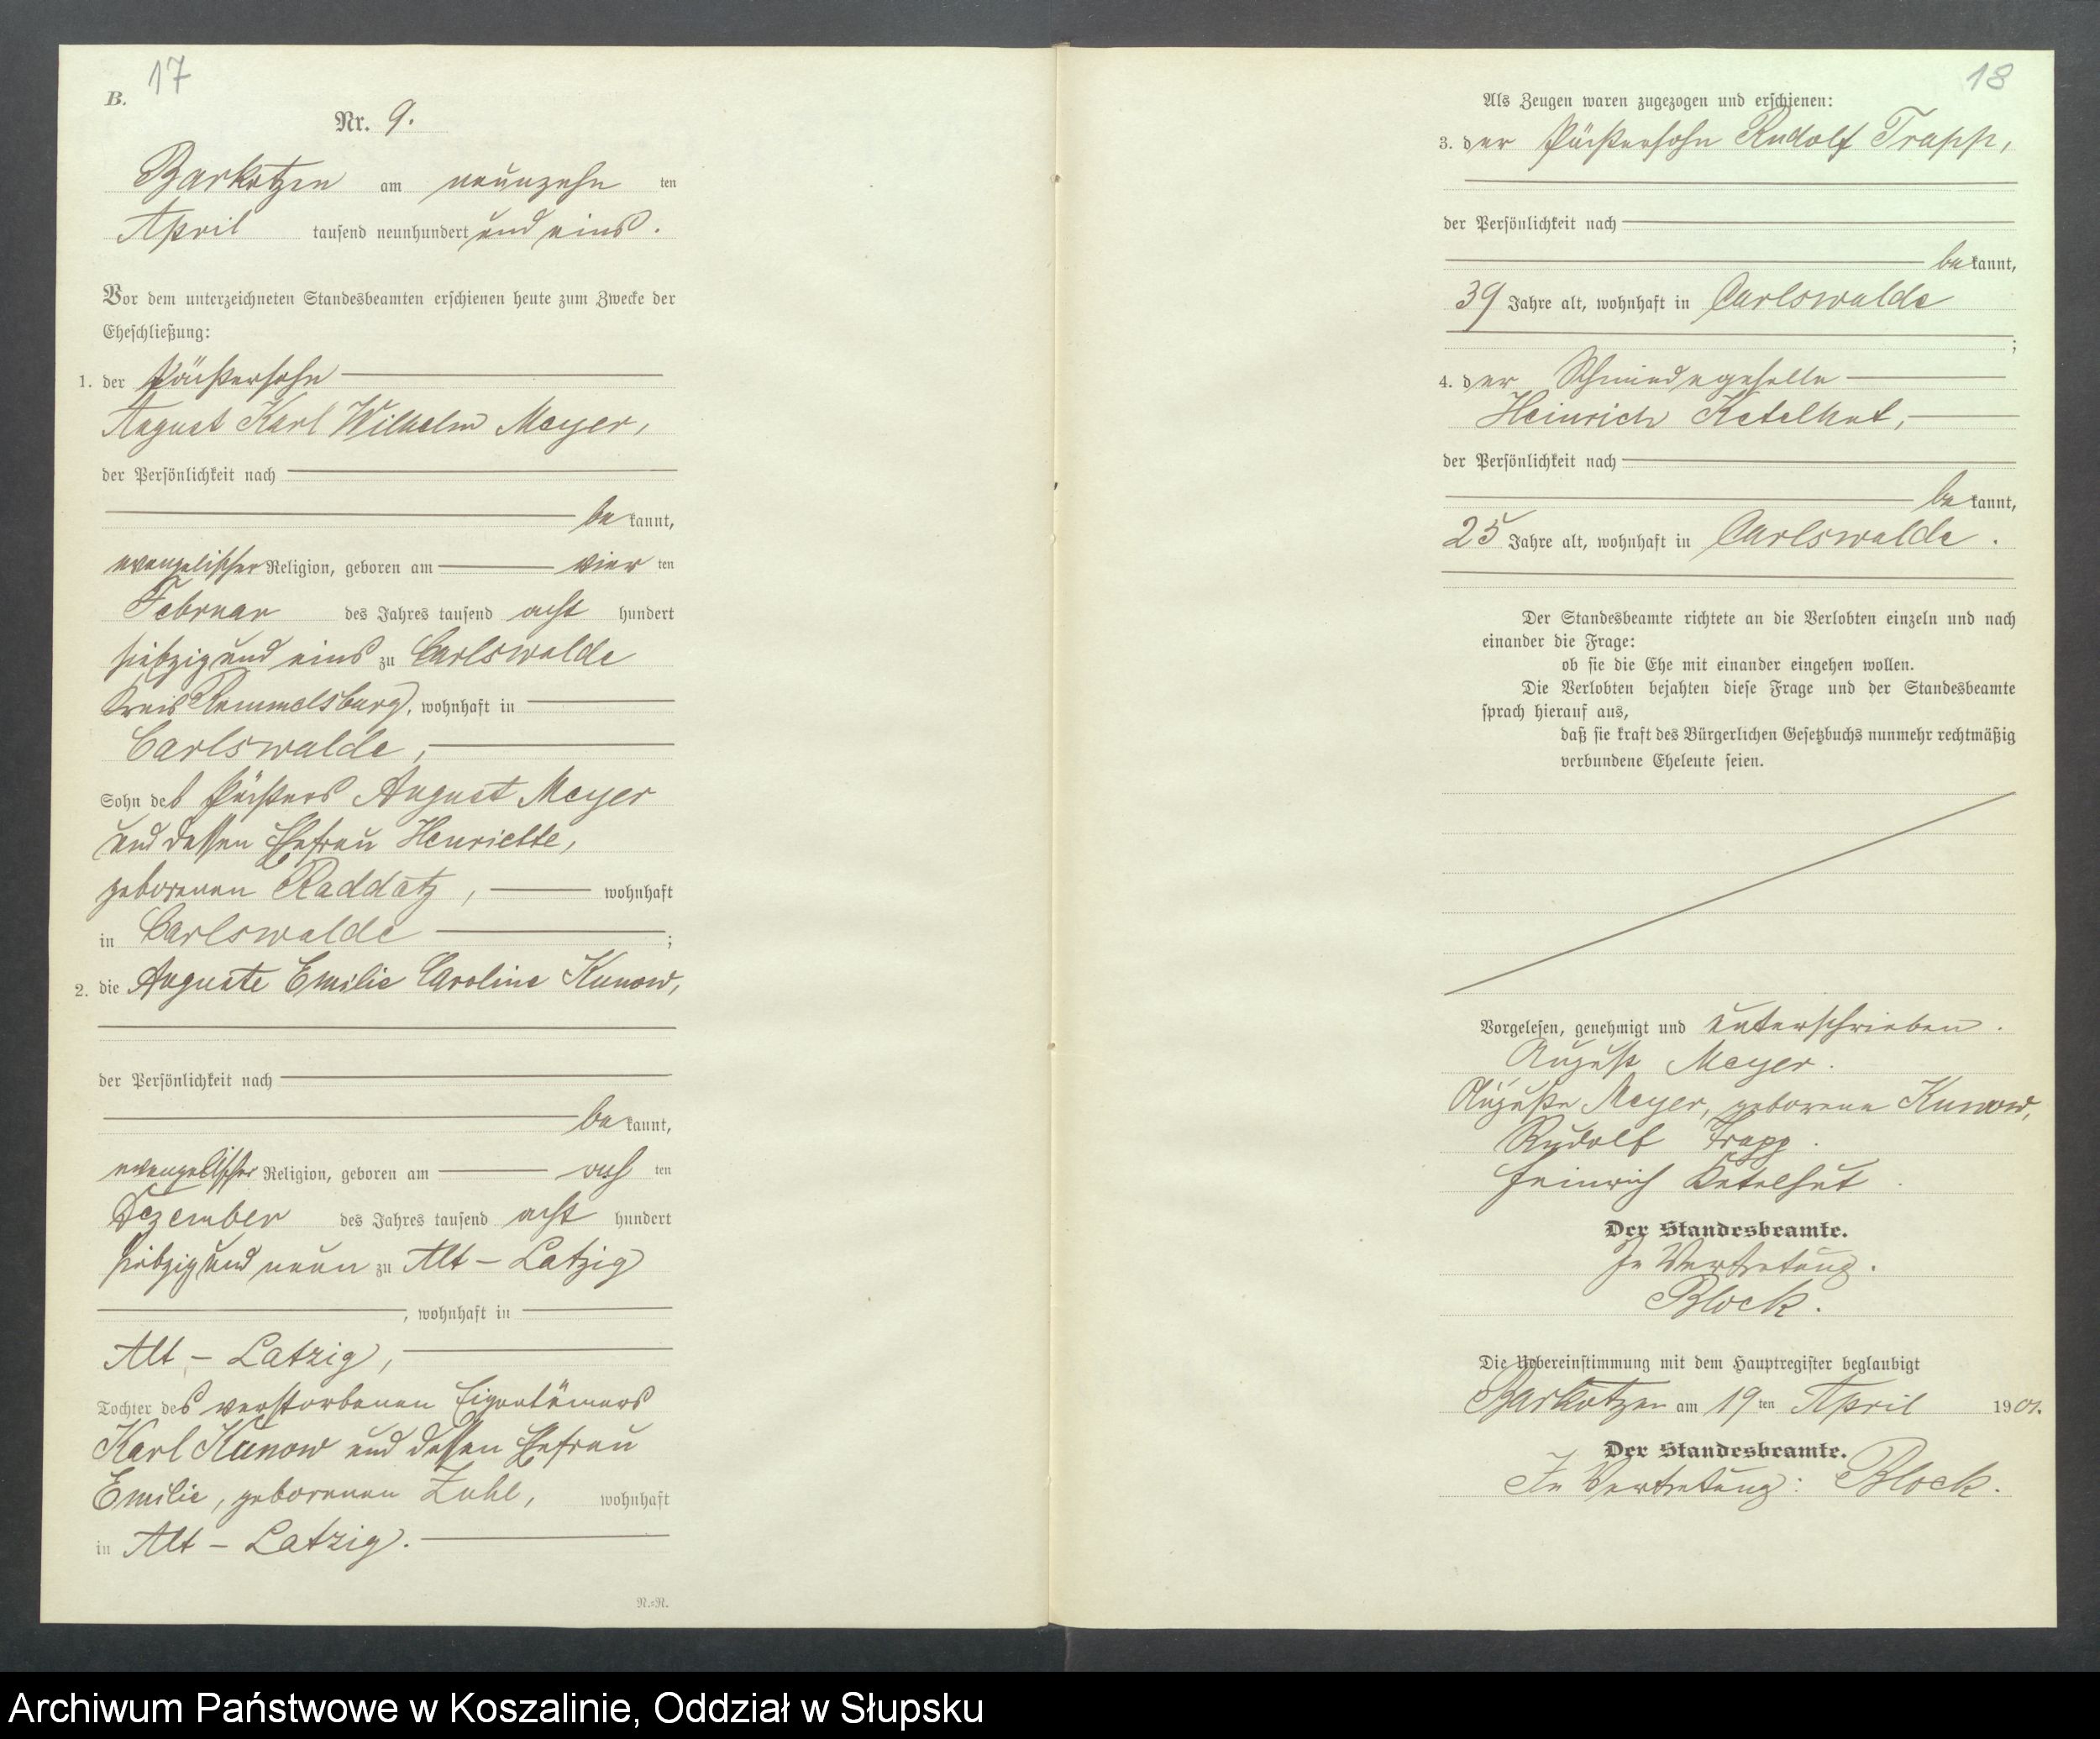 17
B.
Nr. 9.
Barkotzen am neunzehn ten
April tausend neunhundert und eins.
Vor dem unterzeichneten Standesbeamten erschienen heute zum Zwecke der
Eheschließung:
1. der Pächtersohn
August Karl Wilhelm Meyer,
der Persönlichkeit nach
be kannt,
evangelischer Religion, geboren am vier ten
Februar des Jahres tausend acht hundert
siebzig und eins zu Carlswalde
Kreis Rummelsburg, wohnhaft in
Carlswalde,
Sohn des Pächters August Meyer
und dessen Ehefrau Henriette,
geborenen Raddatz, wohnhaft
in Carlswalde ;
2. die Auguste Emilie Caroline Kunow,
der Persönlichkeit nach
be kannt,
evangelischer Religion, geboren am acht ten
Dezember des Jahres tausend acht hundert
siebzig und neun zu Alt - Latzig
, wohnhaft in
Alt - Latzig,
Tochter des verstorbenen Eigentümers
Karl Kunow und dessen Ehefrau
Emilie, geborenen Zuhl, wohnhaft
in Alt - Latzig.
N.=N.
18
Als Zeugen waren zugezogen und erschienen:
3. der Pächtersohn Rudolf Trapp,
der Persönlichkeit nach
be kannt,
39 Jahre alt, wohnhaft in Carlswalde
;
4. der Schmiedegeselle
Heinrich Ketelhut,
der Persönlichkeit nach
be kannt,
25 Jahre alt, wohnhaft in Carlswalde.
Der Standesbeamte richtete an die Verlobten einzeln und nach
einander die Frage:
ob sie die Ehe mit einander eingehen wollen.
Die Verlobten bejahten diese Frage und der Standesbeamte
sprach hierauf aus,
daß sie kraft des Bürgerlichen Gesetzbuchs nunmehr rechtmäßig
verbundene Eheleute seien.
Vorgelesen, genehmigt und unterschrieben.
August Meyer.
Auguste Meyer, geborene Kunow,
Rudolf Trapp.
Heinrich Ketelhut.
Der Standesbeamte.
In Vertretung.
Block.
Die Uebereinstimmung mit dem Hauptregister beglaubigt
Barkotzen am 19 ten April 1901.
Der Standesbeamte.
In Vertretung: Block.
Archiwum Państwowe w Koszalinie, Oddział w Słupsku